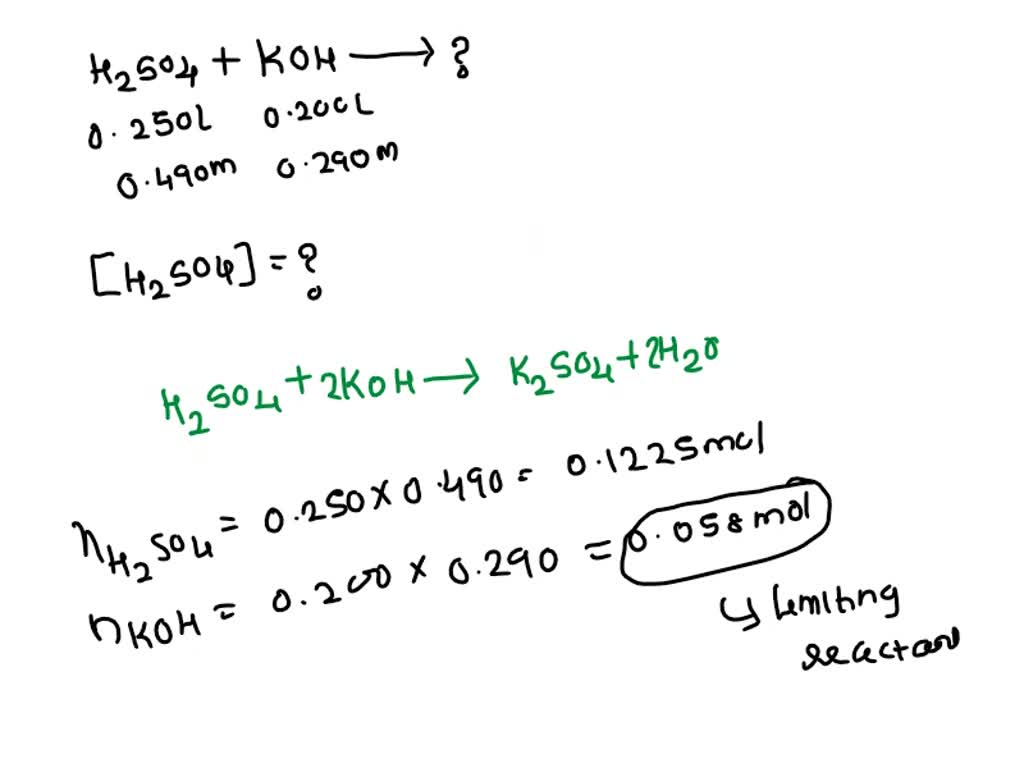 H2SO4 + KOH → ?
0.250L 0.200L
0.490m 0.290m
[H2SO4] = ?
H2SO4 + 2KOH → K2SO4 + 2H2O
nH2SO4 = 0.250 × 0.490 = 0.1225 mol
nKOH = 0.200 × 0.290 = 0.058 mol
↳ limiting
reactant